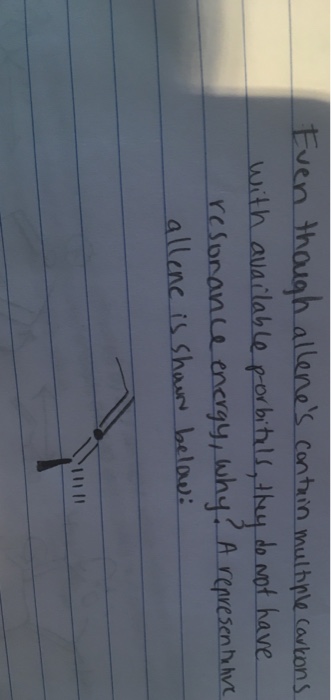 Even though allene's contain multiple carbons
with available porbitals, they do not have
resonance energy, why? A representative
allene is shown below: